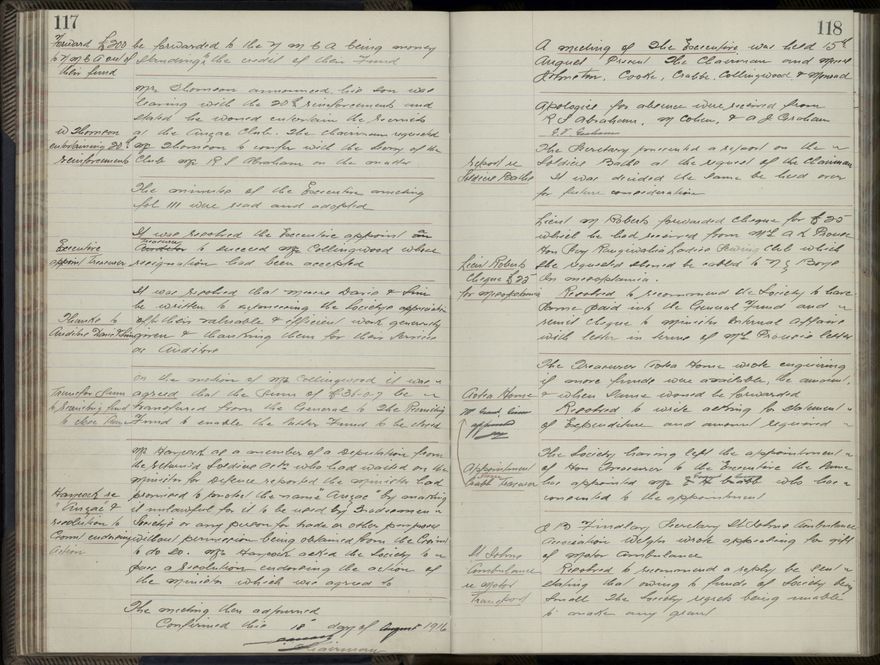 117
Forward £200
to Y M C A out of
their fund
be forwarded to the Y M C A being money
standing to the credit of their Fund
Mr Thomson announced his son was
leaving with the 20th reinforcements and
stated he would entertain the recruits
W Thomson
entertaining 20th
reinforcements
at the Anzac Club. The Chairman requested
Mr Thomson to confer with the Secy of the
Club Mr R S Abraham on the matter
The minutes of the Executive meeting
fol 111 were read and adopted
Executive
appoint Treasurer
It was resolved the Executive appoint an
Treasurer
to succeed Mr Collingwood whose
resignation had been accepted
Thanks to
Auditors Davis & Sim
It was resolved that Messrs Davis & Sim
be written to expressing the Society's appreciation
of their valuable & efficient work generously
given & thanking them for their services
as Auditors
Transfer of sum
to Branding fund
to close same
On the motion of Mr Collingwood it was
agreed that the sum of £35-0-7 be
transferred from the General to the
Fund to enable the latter Fund to be closed
Haycock re
"Anzac" &
resolution to
Govmt endorsing
action
Mr Haycock as a member of a Deputation from
the Returned Soldiers Assn who had waited on the
Minister for Defence reported the Minister had
promised to protect the name "Anzac" by making
it unlawful for it to be used by Tradesmen
Society's or any person for trade or other purposes
without permission being obtained from the Govmt
to do so. Mr Haycock asked the Society to
pass a resolution endorsing the action of
the Minister which was agreed to
The meeting then adjourned
Confirmed this 15 day of August 1916
Chairman
118
A meeting of the Executive was held 15th
August Present The Chairman and Messrs
Johnston, Cooke, Crabbe, Collingwood &
Apologies for absence were received from
R S Abraham, M Cohen, & A J Graham
Report re
Soldiers Baths
The Secretary presented a report on the
Soldiers Baths at the request of the Chairman
It was decided the same be held over
for future consideration
Lieut Roberts
Cheque £25
for Mesopotamia
Lieut M Roberts forwarded cheque for £25
which he had received from Mrs A L
Hon Secy Ladies Sewing Club which
she requested should be cabled to N Z Boys
in Mesopotamia.
Resolved to recommend the Society to have
same paid into the General Fund and
remit cheque to Minister Internal Affairs
with letter in terms of Mrs letter
Aotea Home
The Treasurer Aotea Home wrote enquiring
if more funds were available, the amount,
& when same would be forwarded
Resolved to write asking for statement
of Expenditure and amount required
Appointment
Treasurer
The Society having left the appointment
of Hon Treasurer to the Executive the same
has appointed Mr who has
consented to the appointment
St Johns
Ambulance
re Motor
Transport
J B Findlay Secretary St Johns Ambulance
Association Welgtn wrote appealing for gift
of Motor Ambulance
Resolved to recommend a reply be sent
stating that owing to funds of Society being
small the Society regrets being unable
to make any grant